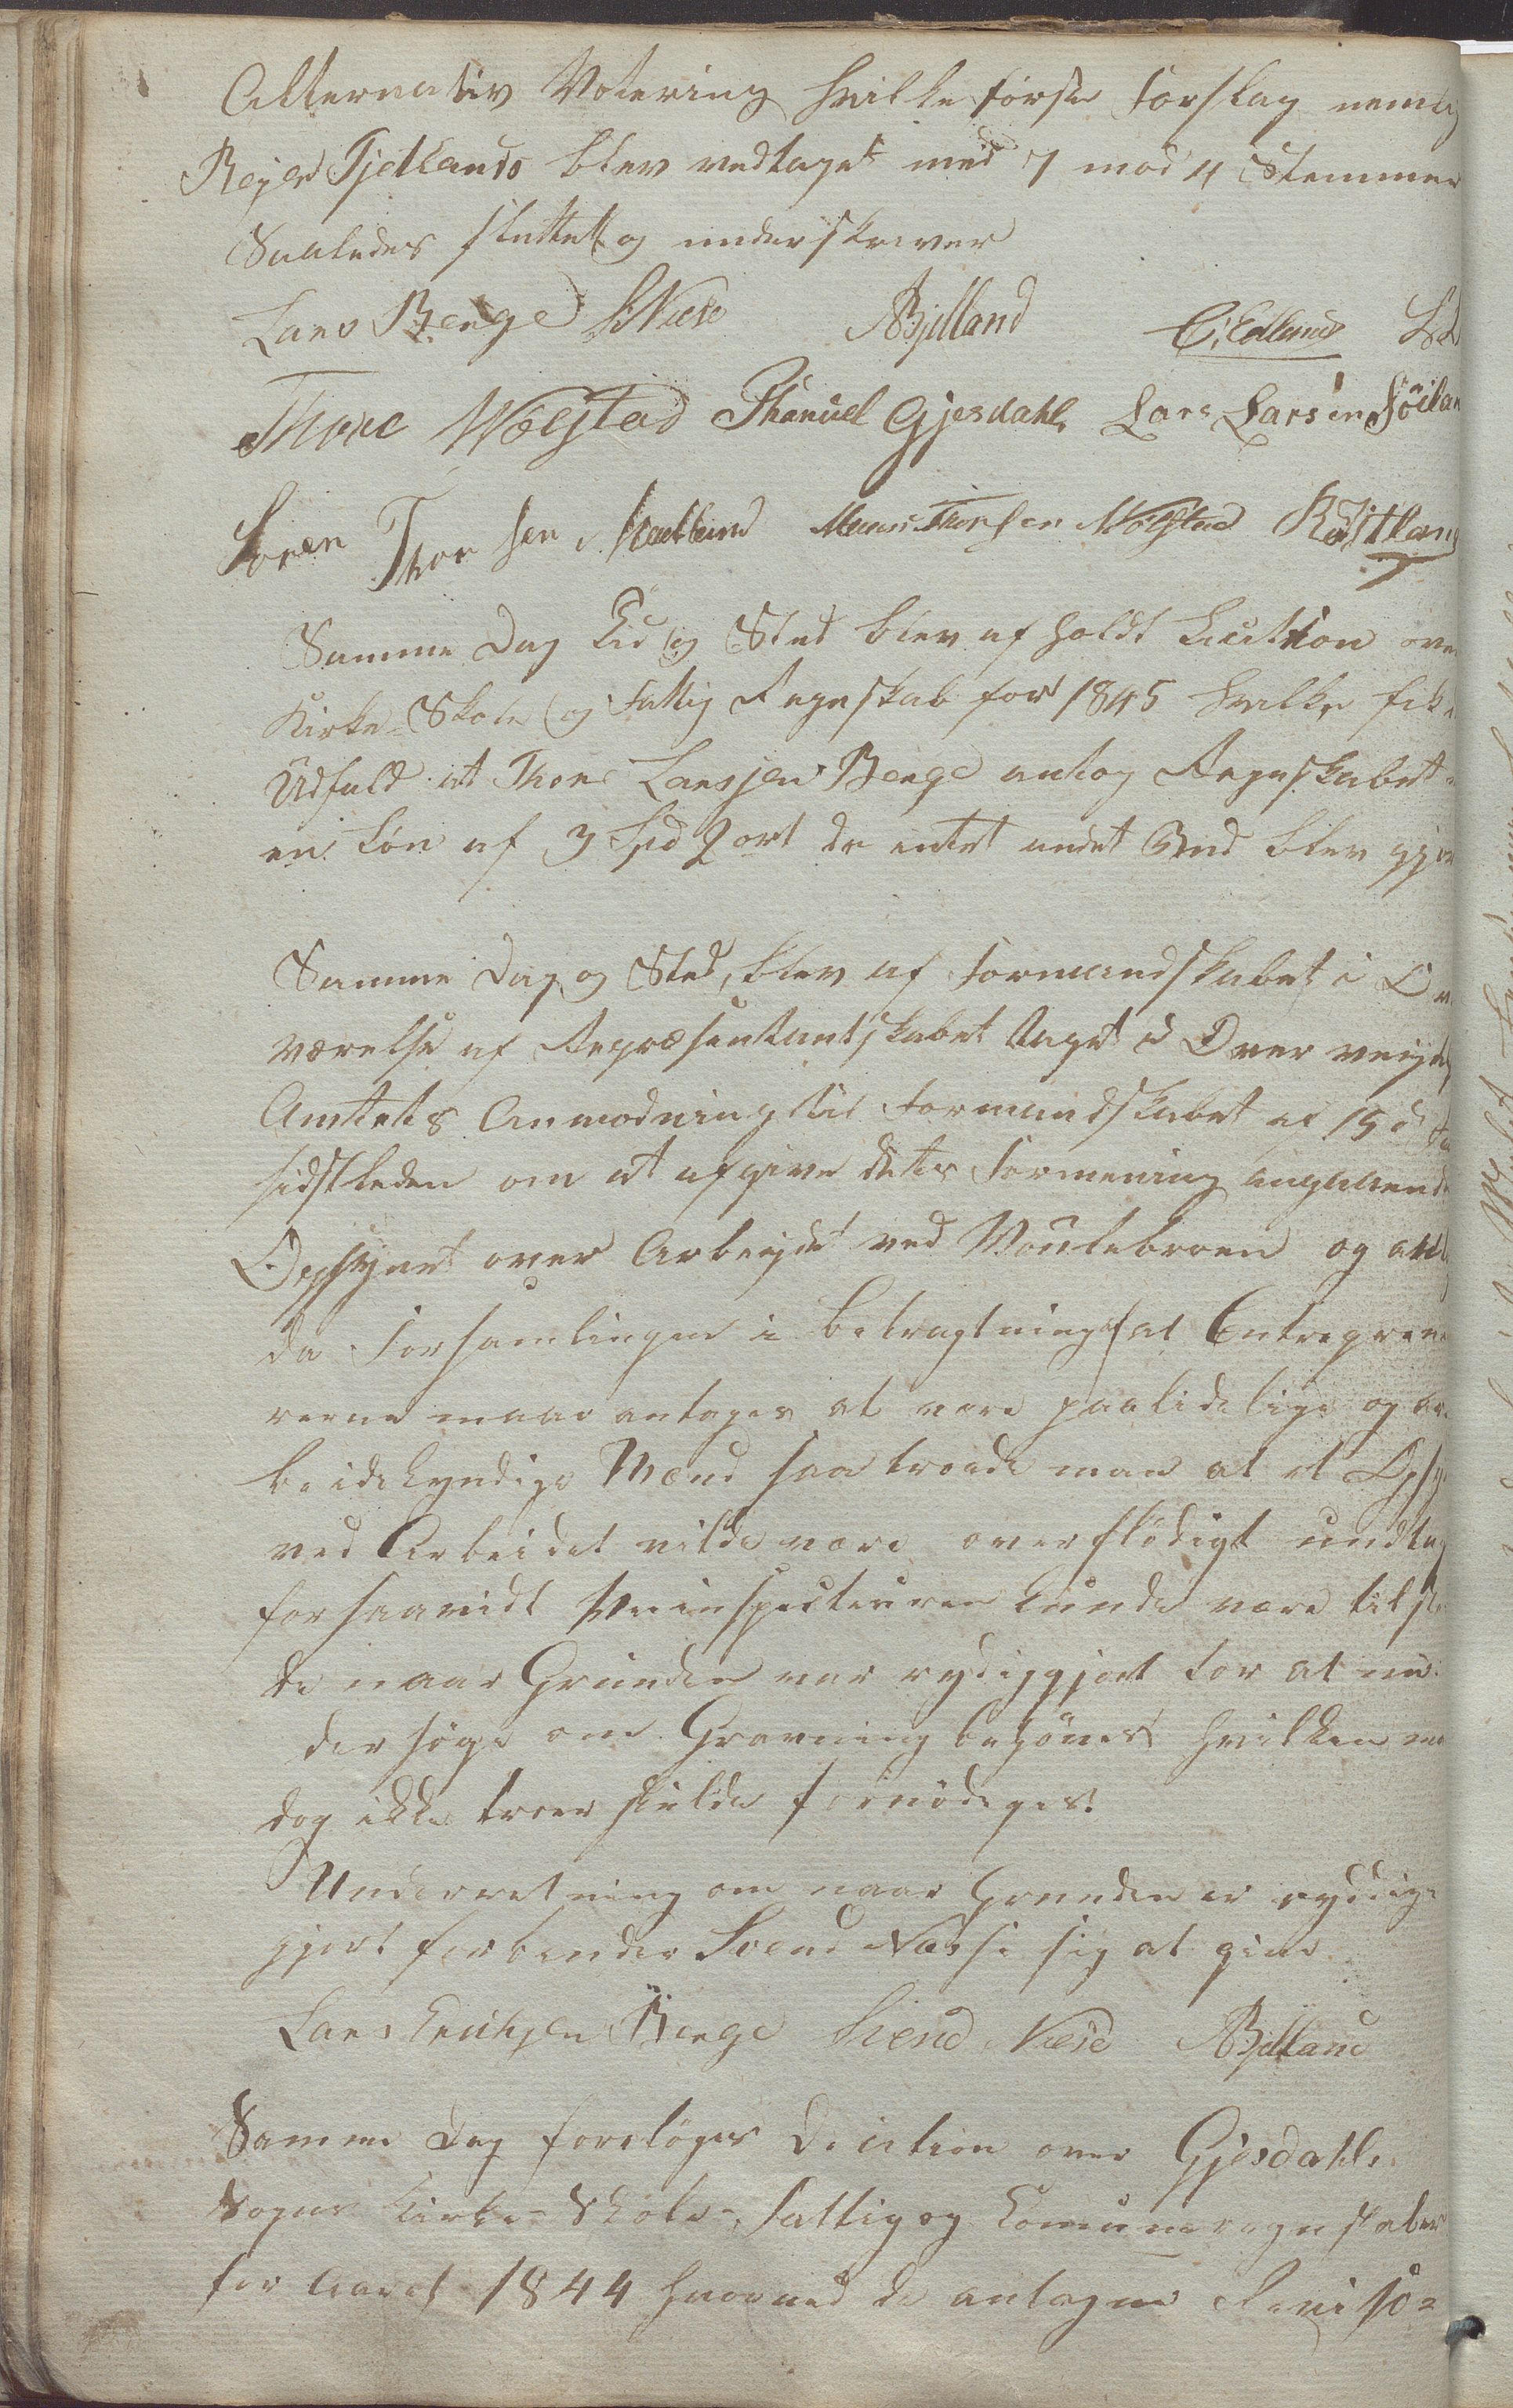 Alternativ Votering hvilke første Forslag nemlig
Reier Fjetlands blev vedtaget med 7 mod 4 Stemmer
Saaledes sluttet og underskrevet
Lars Berge S Næse ABjelland C. Edland
Thore Wølstad Thaniel Gjesdahl, Lars Larsen
Soren Thorsen Mauns Thorsen Wølstad RFitland
Samme Dag Tid og Sted blev af holdt Licitation over
Kirke- Skole og Fattig Regnskab for 1845 hvilke fik
Udfald at Thore Larssen Berge antog Regnskabet
en Løn af 3 Spd 2 ort da intet andet Bud blev gjor
Samme Dag og Sted, blev af Formandskabet i O
værelse af Repræsentantskabet taget i Over veiel
Amtets Anmodning til Formandskabet af 15 d
sidstleden om at afgive dets Formening angaaende
Opsynet over Arbeidet ved Woulebroen og
da Forsamlingen i betragtning at Entrepren
rerne maae antages at være paalidelige og ar
beidskyndige Mænd saa troede man at et Opsy
ved Arbeidet vilde være overflødigt undtag
forsaavidt Veiinspecteuren kunde være tilste
de naar Grunden var rydiggjort for at un
dersøge om Gravning behøves hvilken ma
dog ikke troer skulde fornødeges.
Underretning om naar Grunden er ryddig
gjort forbinder Svend Næsse sig at give
Lars Erichsen Berge Svend Næse ABjelland
Samme Dag foretoges Decition over Gjesdahls
Sogns Kirke- Skole- Fattig og Comuneregnskaber
for Aaret 1844 hvorved de antagne Reviso-